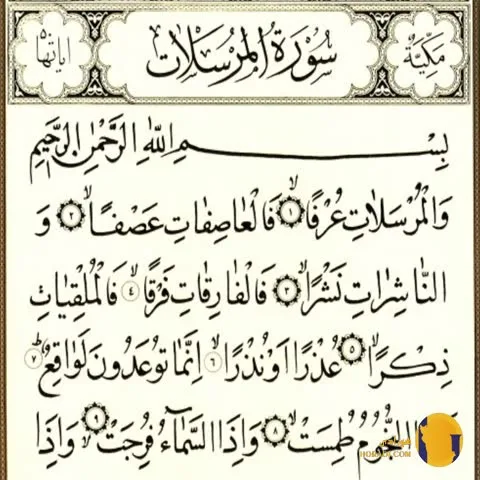 مَكِّيَّةٌ سُورَةُ الْمُرْسَلَاتِ آيَاتُهَا ٥٠
بِسْمِ اللّٰهِ الرَّحْمٰنِ الرَّحِيمِ
وَالْمُرْسَلَاتِ عُرْفًاۙ ١ فَالْعَاصِفَاتِ عَصْفًاۙ ٢ وَ
النَّاشِرَاتِ نَشْرًاۙ ٣ فَالْفَارِقَاتِ فَرْقًاۙ ٤ فَالْمُلْقِيَاتِ
ذِكْرًاۙ ٥ عُذْرًا اَوْ نُذْرًاۙ ٦ اِنَّمَا تُوعَدُونَ لَوَاقِعٌۜ ٧
النُّجُومُ طُمِسَتْۙ ٨ وَاِذَا السَّمَٓاءُ فُرِجَتْۙ ٩ وَاِذَا